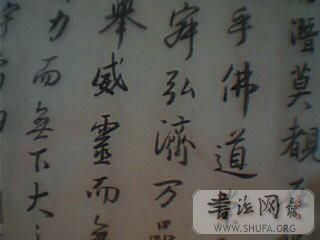 潛莫覩
乎佛道
寂弘濟万品
舉威靈而無
力而無下大之
宇宙
書法网
WWW.SHUFA.ORG